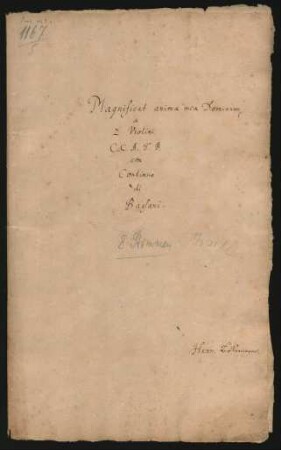 1167
Magnificat anima mea Dominum
a
2 Violini
C. C. A. T. B.
con
Continuo
di
Bassani.